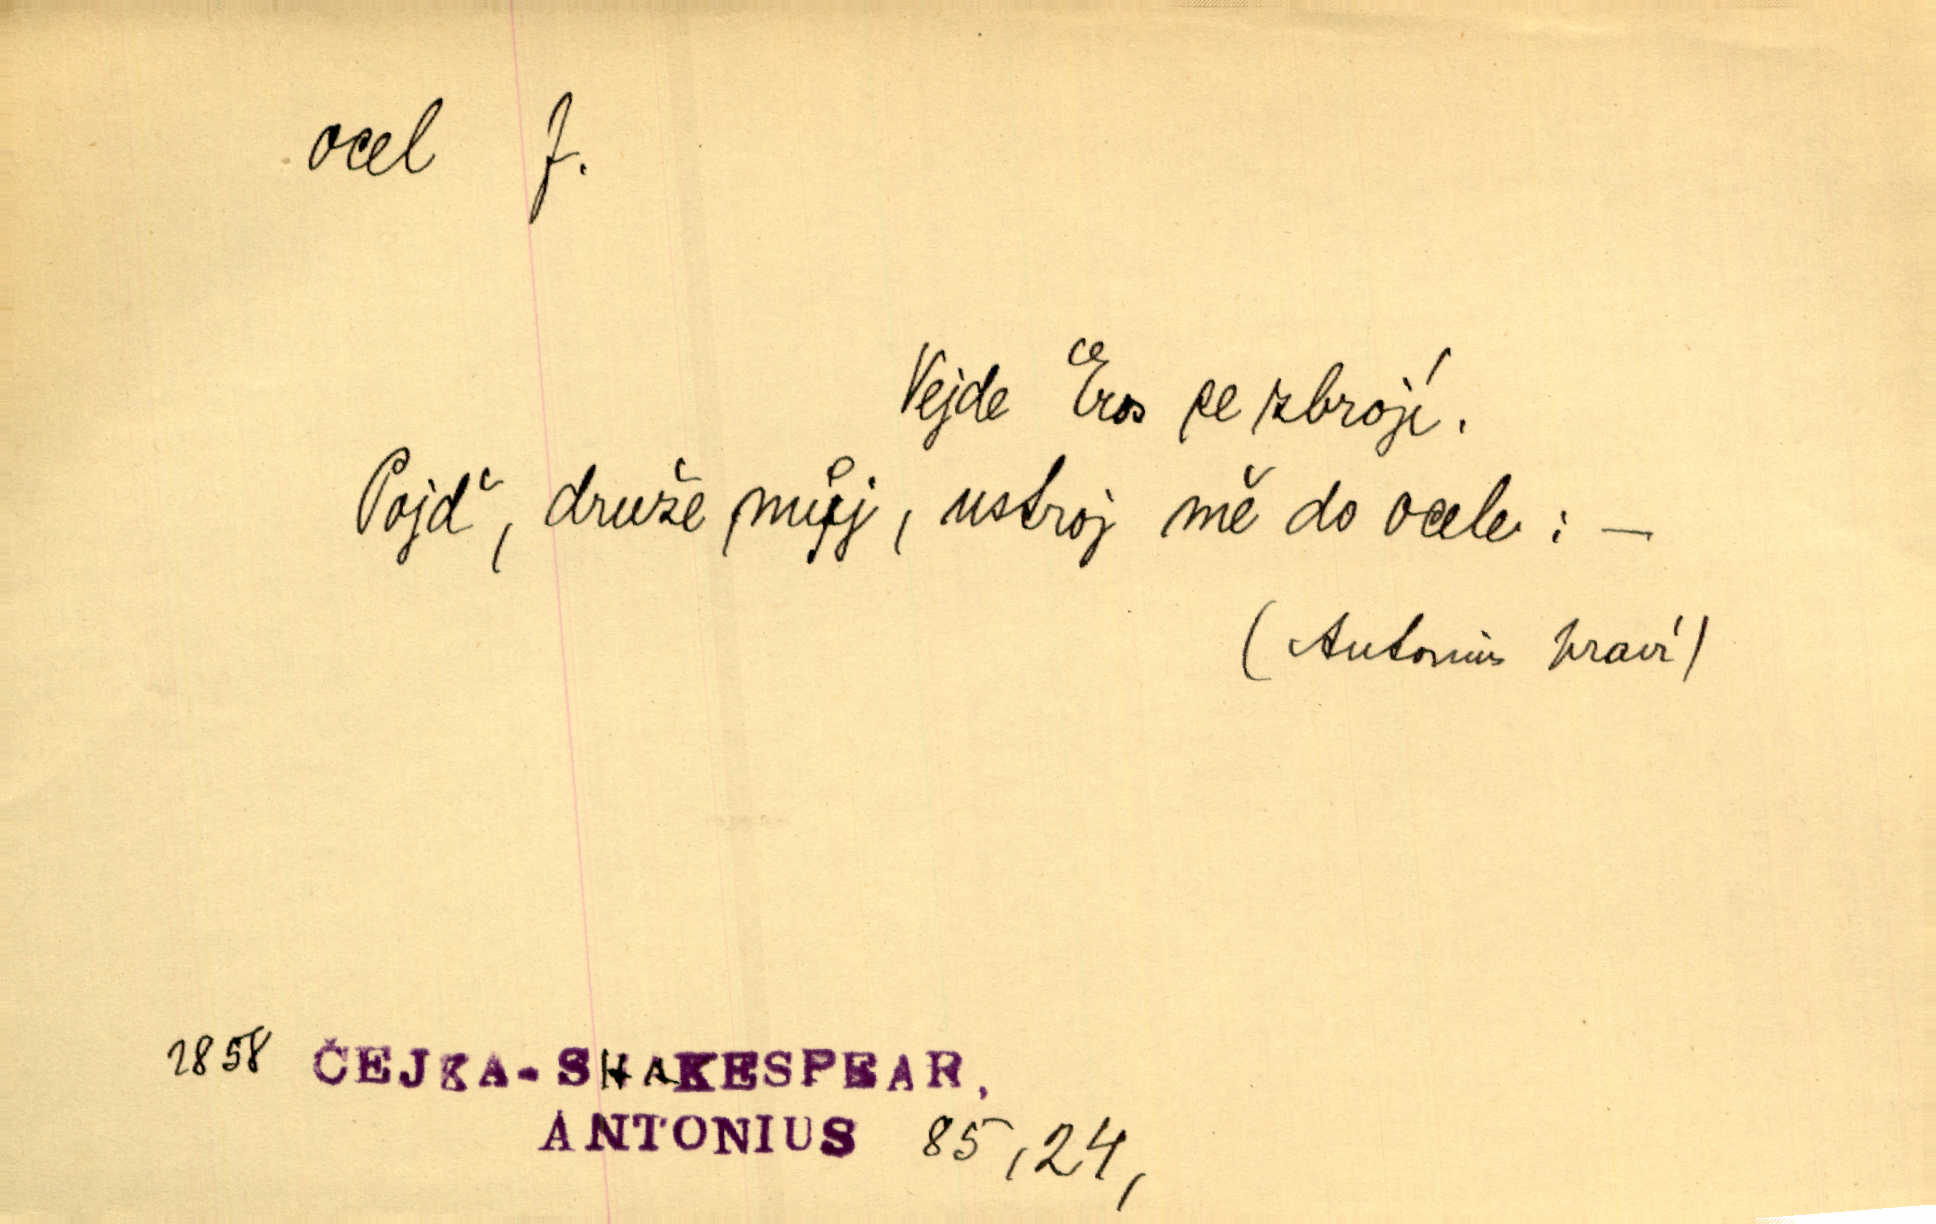 ocel f.
Vejde Eros se zbrojí.
Pojď, druže můj, ustroj mě do ocele: —
(Antonius praví)
1858 ČEJKA-SHAKESPEAR,
ANTONIUS 85,24,